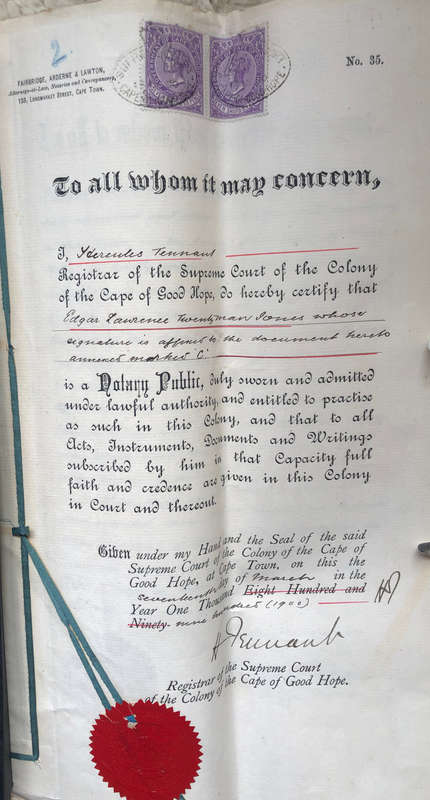 2.
FAIRBRIDGE, ARDERNE & LAWTON,
Attorneys-at-Law, Notaries and Conveyancers,
130, LONGMARKET STREET, CAPE TOWN.
No. 35.
To all whom it may concern,
I, Hercules Tennant
Registrar of the Supreme Court of the Colony
of the Cape of Good Hope, do hereby certify that
Edgar Lawrence Twentyman Jones whose
signature is affixed to the document hereto
annexed marked C.
is a Notary Public, duly sworn and admitted
under lawful authority, and entitled to practise
as such in this Colony, and that to all
Acts, Instruments, Documents and Writings
subscribed by him in that Capacity full
faith and credence are given in this Colony
in Court and thereout.
Given under my Hand and the Seal of the said
Supreme Court of the Colony of the Cape of
Good Hope, at Cape Town, on this the
seventeenth day of March in the
Year One Thousand Eight Hundred and
Ninety- nine hundred (1900)
H Tennant
Registrar of the Supreme Court
of the Colony of the Cape of Good Hope.